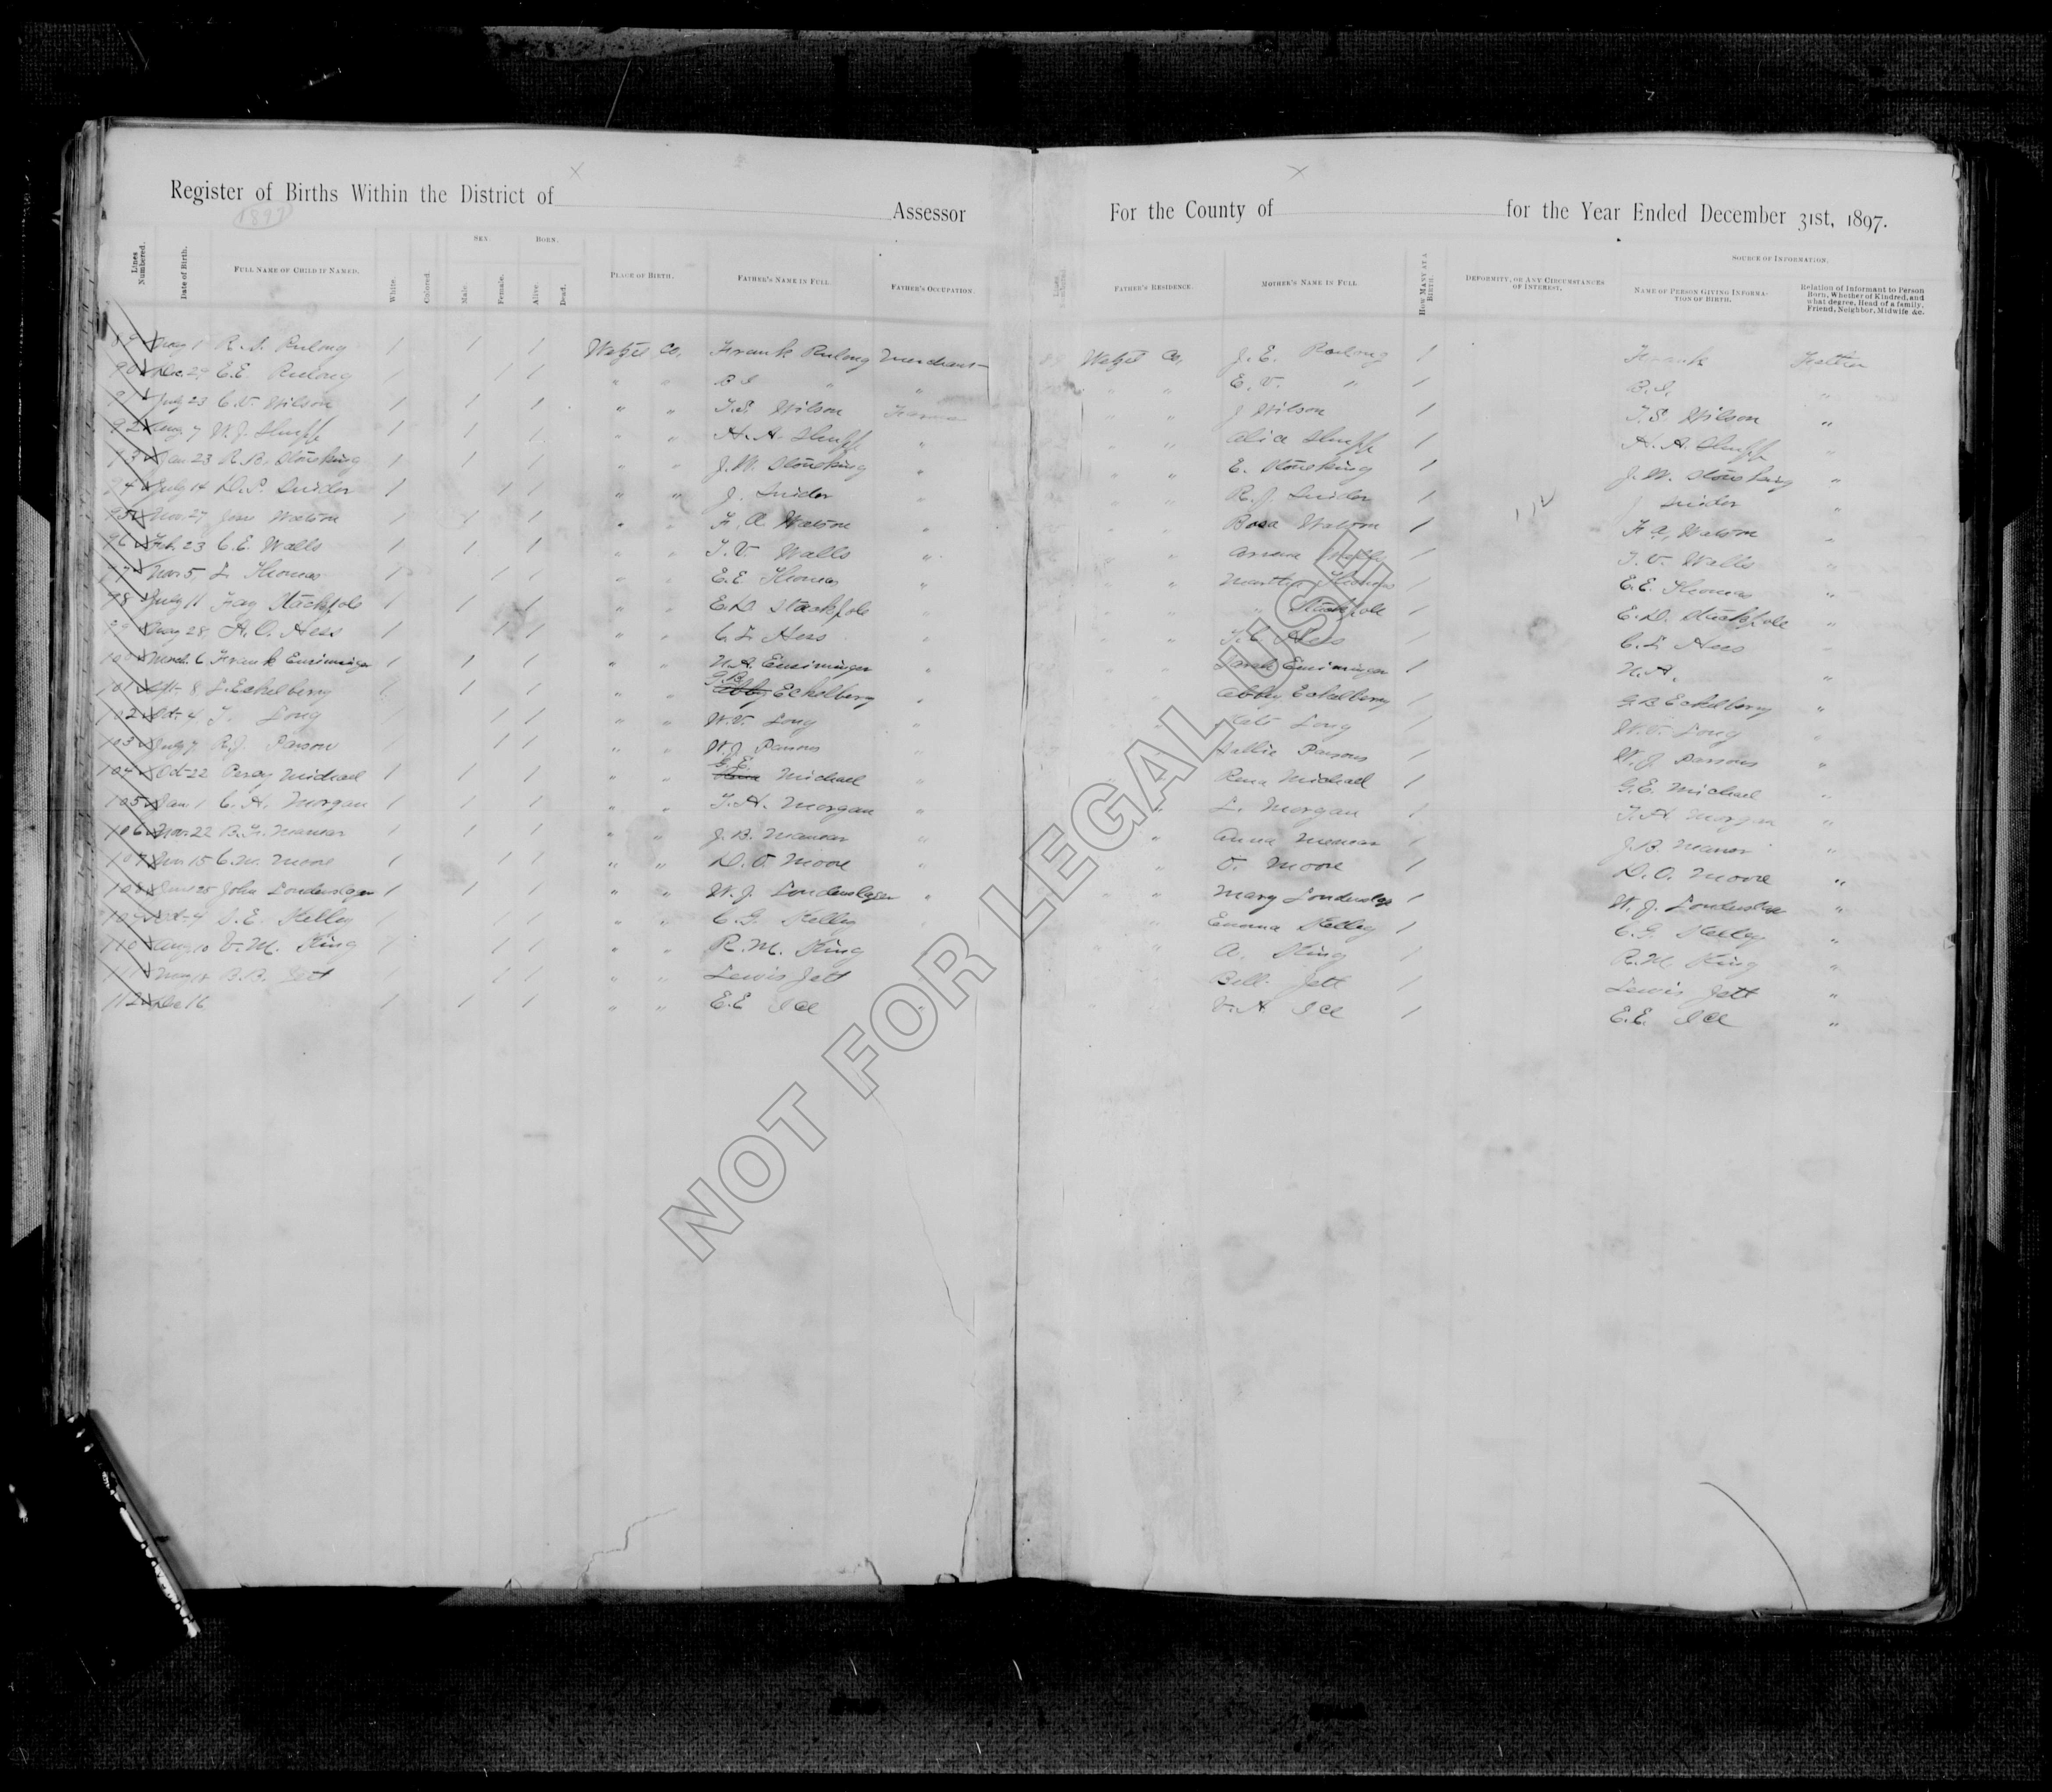 Register of Births Within the District of Assessor For the County of for the Year Ended December 31st, 1897.
1897
Lines Numbered. Date of Birth. FULL NAME OF CHILD IF NAMED. White. Colored. SEX. Male. Female. BORN. Alive. Dead. PLACE OF BIRTH. FATHER'S NAME IN FULL. FATHER'S OCCUPATION. FATHER'S RESIDENCE. MOTHER'S NAME IN FULL. HOW MANY AT A BIRTH. DEFORMITY, OR ANY CIRCUMSTANCES OF INTEREST. SOURCE OF INFORMATION. NAME OF PERSON GIVING INFORMATION OF BIRTH. Relation of Informant to Person Born, Whether of Kindred, and what degree, Head of a family, Friend, Neighbor, Midwife &c.
89 May 1 R. S. Rulong 1 1 1 Wetzel Co. Frank Rulong Merchant 89 Wetzel Co. J. E. Rulong 1 Frank Father
90 Dec. 24 E.E. Rulong 1 1 1 " " B S " " " " E. V. " 1 B.S. "
91 July 23 C.V. Wilson 1 1 1 " " T.S. Wilson Farmer " " J Wilson 1 T.S. Wilson "
92 Aug 7 W.J. 1 1 1 " " H.A. " " " Alice 1 H.A. "
93 Jan 23 R.B. Stoneking 1 1 1 " " J.W. Stoneking " " " E. Stoneking 1 J.W. Stoneking "
94 July 14 D.S. Snider 1 1 1 " " J. Snider " " " R.J. Snider 1 J Snider "
95 Nov. 27 Watson 1 1 1 " " F.A. Watson " " " Rosa Watson 1 112 F.A. Watson "
96 Feb. 23 C.E. Walls 1 1 1 " " T.V. Walls " " " Walls 1 T.V. Walls "
97 5 L Thomas 1 1 1 " " E.E Thomas " " " Martha Thomas 1 E.E. Thomas "
98 July 11 Fay Stackpole 1 1 1 " " E.D. Stackpole " " " " Stackpole 1 E.D. Stackpole "
99 May 28 H.O. Hess 1 1 1 " " C L Hess " " " Hess 1 C. L Hess "
100 March 6 Frank Ensiminger 1 1 1 " " N.A. Ensiminger " " " Sarah Ensiminger 1 N.A. "
101 8 L. Eckelberry 1 1 1 " " G.B. Eckelberry " " " Abby Eckelberry 1 G.B Eckelberry "
102 Oct 4 T. Long 1 1 1 " " W.V. Long " " " Kate Long 1 W.V. Long "
103 July 7 R.J. Parson 1 1 1 " " W.J. Parsons " " " Sallie Parsons 1 W.J. Parsons "
104 Oct 22 Percy Michael 1 1 1 " " G.E. Michael " " " Rena Michael 1 G.E. Michael "
105 Jan 1 C.H. Morgan 1 1 1 " " T.H. Morgan " " " L. Morgan 1 T.H Morgan "
106 22 B.F. 1 1 1 " " J.B. " " " Anna 1 J.B. "
107 15 C.M. Moore 1 1 1 " " D.O. Moore " " " O. Moore 1 D.O. Moore "
108 June 25 John Louderslager 1 1 1 " " W.J. Louderslager " " " Mary 1 W.J. "
109 Oct 4 S.E. Kelley 1 1 1 " " C.G. Kelley " " " Emma Kelley 1 C.G Kelley "
110 Aug 10 V.M. King 1 1 1 " " R.M. King " " A. King 1 R.M King "
111 B.B. Jett 1 1 1 " " Lewis Jett Bell Jett 1 Lewis Jett "
112 Dec 16 1 1 1 " " E.E Ice " V.A. Ice 1 E.E. Ice "
NOT FOR LEGAL USE